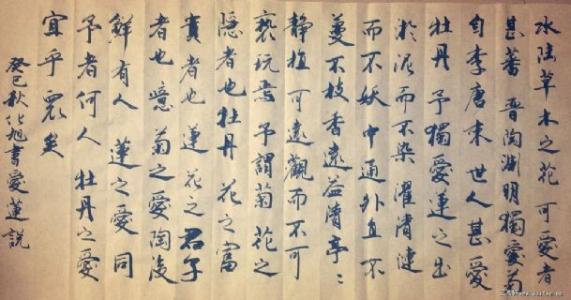 水陸草木之花可愛者
甚蕃晋陶淵明獨愛菊
自李唐来世人甚愛
牡丹予獨愛蓮之出
淤泥而不染濯清漣
而不妖中通外直不
蔓不枝香遠益清亭〻
静植可遠觀而不可
褻玩焉予謂菊花之
隱者也牡丹花之富
貴者也蓮花之君子
者也噫菊之愛陶後
鮮有人蓮之愛同
予者何人牡丹之愛
宜乎眾矣
癸巳秋旭書愛蓮説